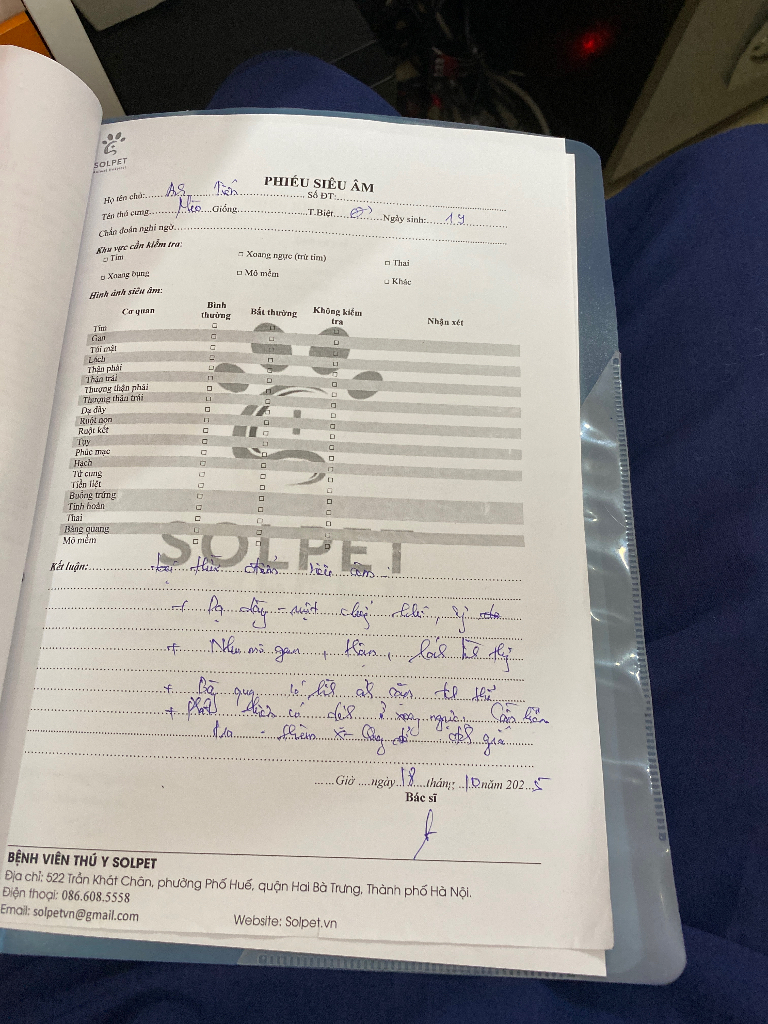 SOLPET
PHIẾU SIÊU ÂM
Họ tên chủ: Số ĐT:
Tên thú cưng: Mèo Giống T.Biệt Ngày sinh: 19
Chẩn đoán nghi ngờ
Khu vực cần kiểm tra:
□ Tim □ Xoang ngực (trừ tim) □ Thai
□ Xoang bụng □ Mô mềm □ Khác
Hình ảnh siêu âm:
Cơ quan Bình thường Bất thường Không kiểm tra Nhận xét
Tim □ □ □
Gan □ □ □
Túi mật □ □ □
Lách □ □ □
Thận phải □ □ □
Thận trái □ □ □
Thượng thận phải □ □ □
Thượng thận trái □ □ □
Dạ dày □ □ □
Ruột non □ □ □
Ruột kết □ □ □
Tụy □ □ □
Phúc mạc □ □ □
Hạch □ □ □
Tử cung □ □ □
Tiền liệt □ □ □
Buồng trứng □ □ □
Tinh hoàn □ □ □
Thai □ □ □
Bàng quang □ □ □
Mô mềm □ □ □
SOLPET
Kết luận: Tại thời điểm siêu âm:
+ Dạ dày - ruột
+ Nhu mô gan, thận, lách
+ có
+ Phát hiện có dịch ở xoang ngực. Cần
thêm
Giờ ngày 18 tháng 10 năm 2025
Bác sĩ
BỆNH VIÊN THÚ Y SOLPET
Địa chỉ: 522 Trần Khát Chân, phường Phố Huế, quận Hai Bà Trưng, Thành phố Hà Nội.
Điện thoại: 086.608.5558
Email: solpetvn@gmail.com Website: Solpet.vn